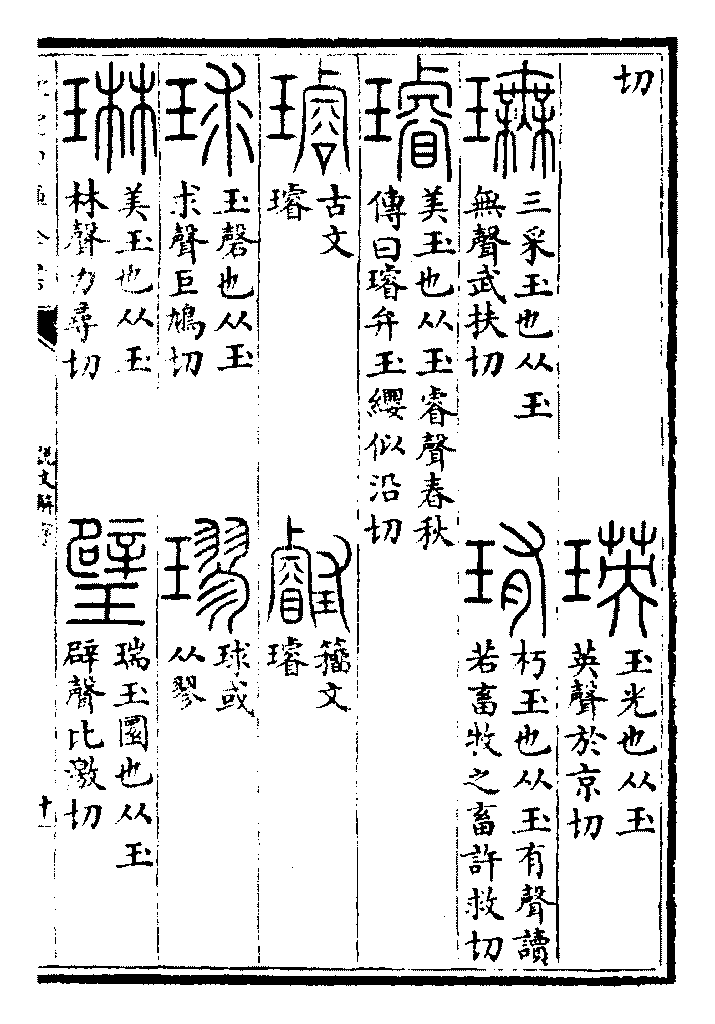 切
瑛
玉光也从玉
英聲於京切
璑
三采玉也从玉
無聲武扶切
珛
朽玉也从玉有聲讀
若畜牧之畜許救切
璿
美玉也从玉睿聲春秋
傳曰璿弁玉纓似沿切
古文
璿
籀文
璿
球
玉磬也从玉
求聲巨鳩切
璆
球或
从翏
琳
美玉也从玉
林聲力尋切
璧
瑞玉圜也从玉
辟聲比激切
說文解字